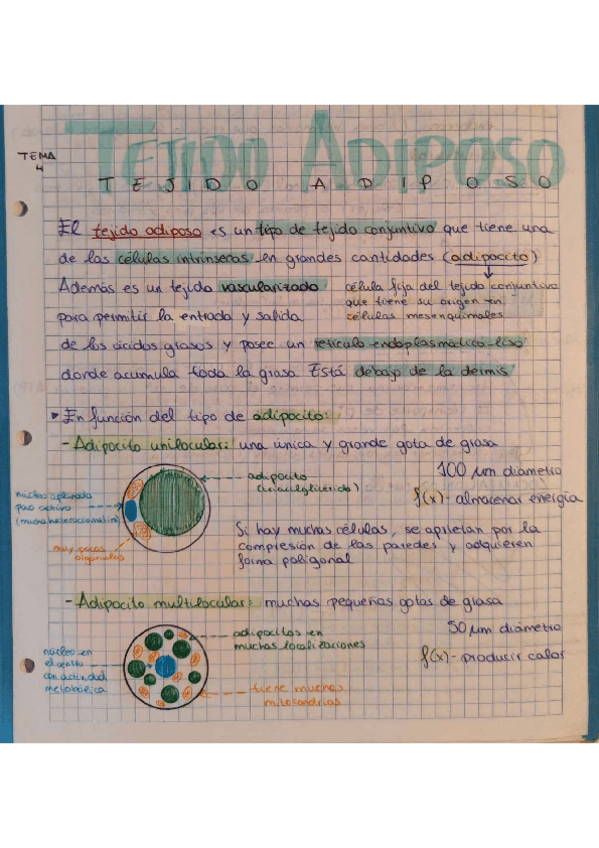 TEJIDO ADIPOSO
TEMA
4
TEJIDO ADIPOSO
El tejido adiposo es un tipo de tejido conjuntivo que tiene una
de las células intrínsecas en grandes cantidades (adipocito)
Además es un tejido vascularizado
célula fija del tejido conjuntivo
para permitir la entrada y salida
que tiene su origen en
células mesenquimales
de los ácidos grasos y posee un retículo endoplasmático liso
donde acumula toda la grasa. Está debajo de la dermis
► En función del tipo de adipocito:
- Adipocito unilocular: una única y grande gota de grasa
100 μm diámetro
adipocito
(triacilglicérido)
f(x)- almacenar energía
núcleo aplanado
poco activo
(mucha heterocromatina)
Si hay muchas células, se aprietan por la
compresión de las paredes y adquieren
forma poligonal
muy pocos
orgánulos
- Adipocito multilocular: muchas pequeñas gotas de grasa
50 μm diámetro
adipocitos en
muchas localizaciones
f(x)- producir calor
núcleo en
el centro
con actividad
metabólica
tiene muchas
mitocondrias